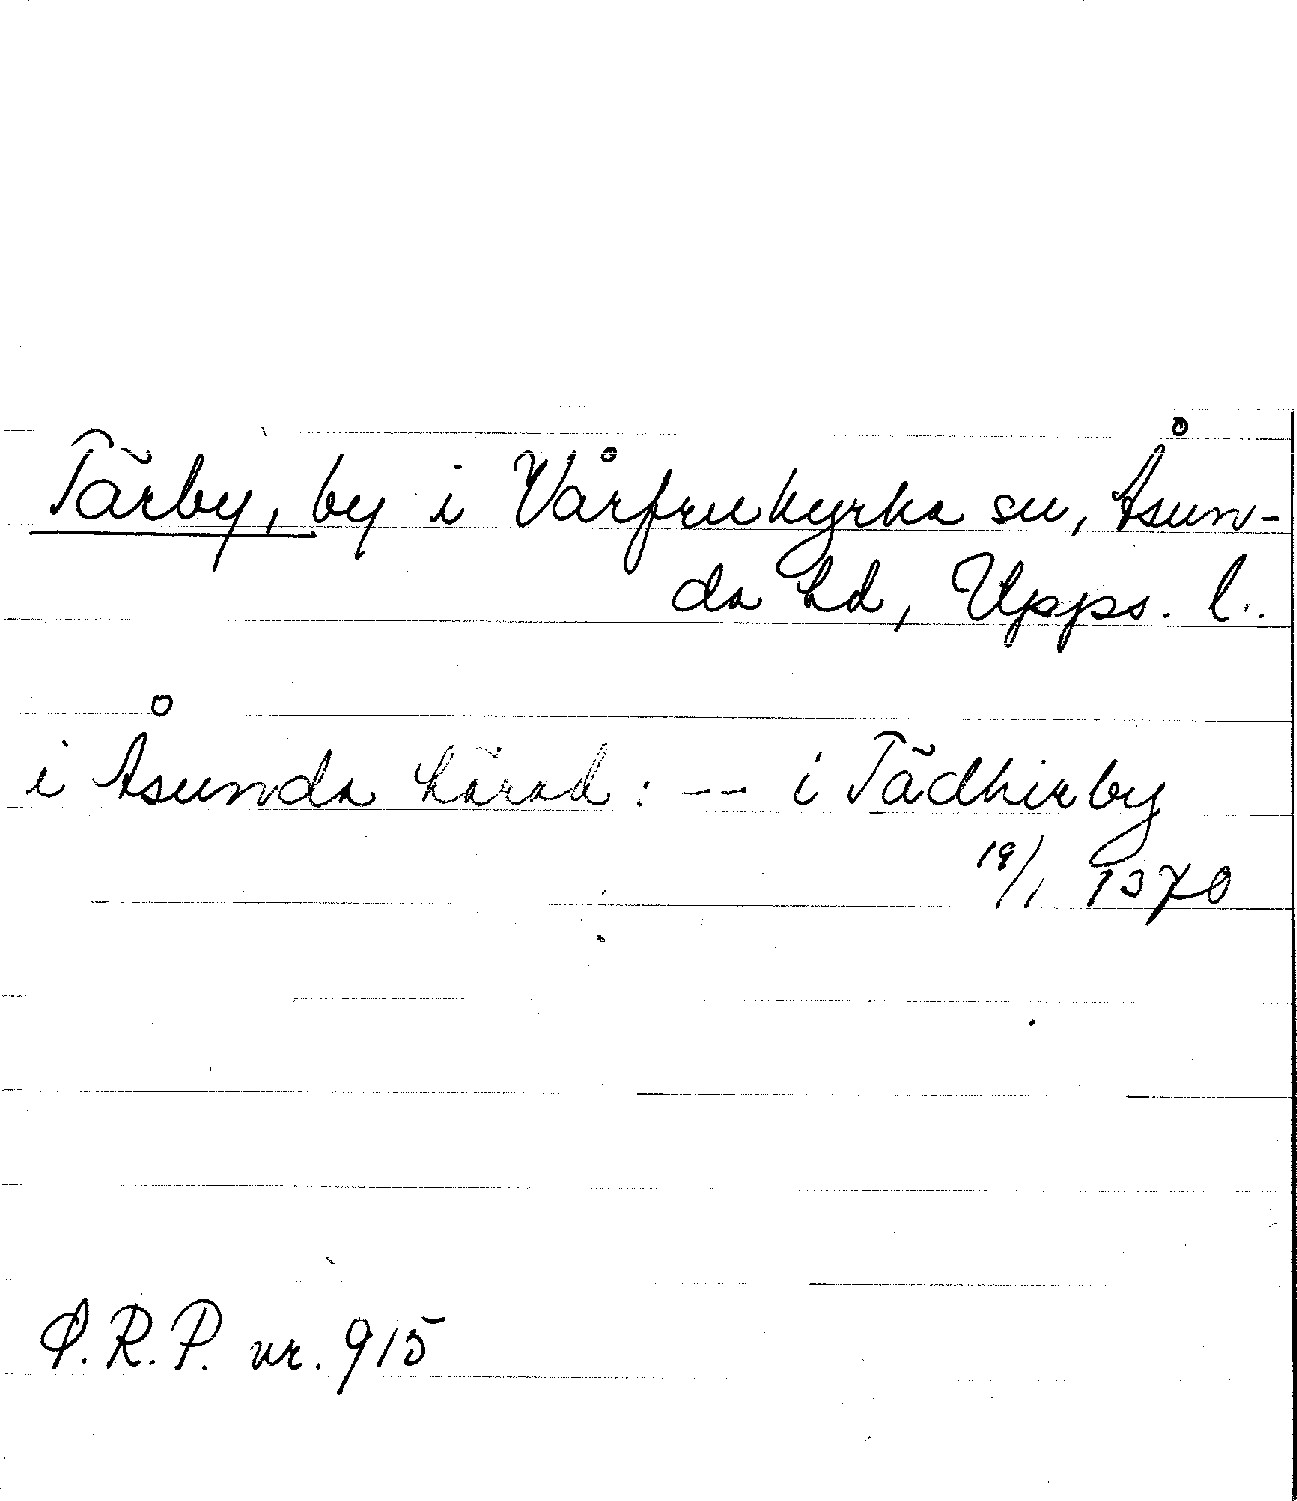 Tärby, by i Vårfrukyrka sn, Åsun-
da hd, Upps. l.
i Åsunda härad: -- i Tädhirby
19/1 1370
S.R.P. nr. 915